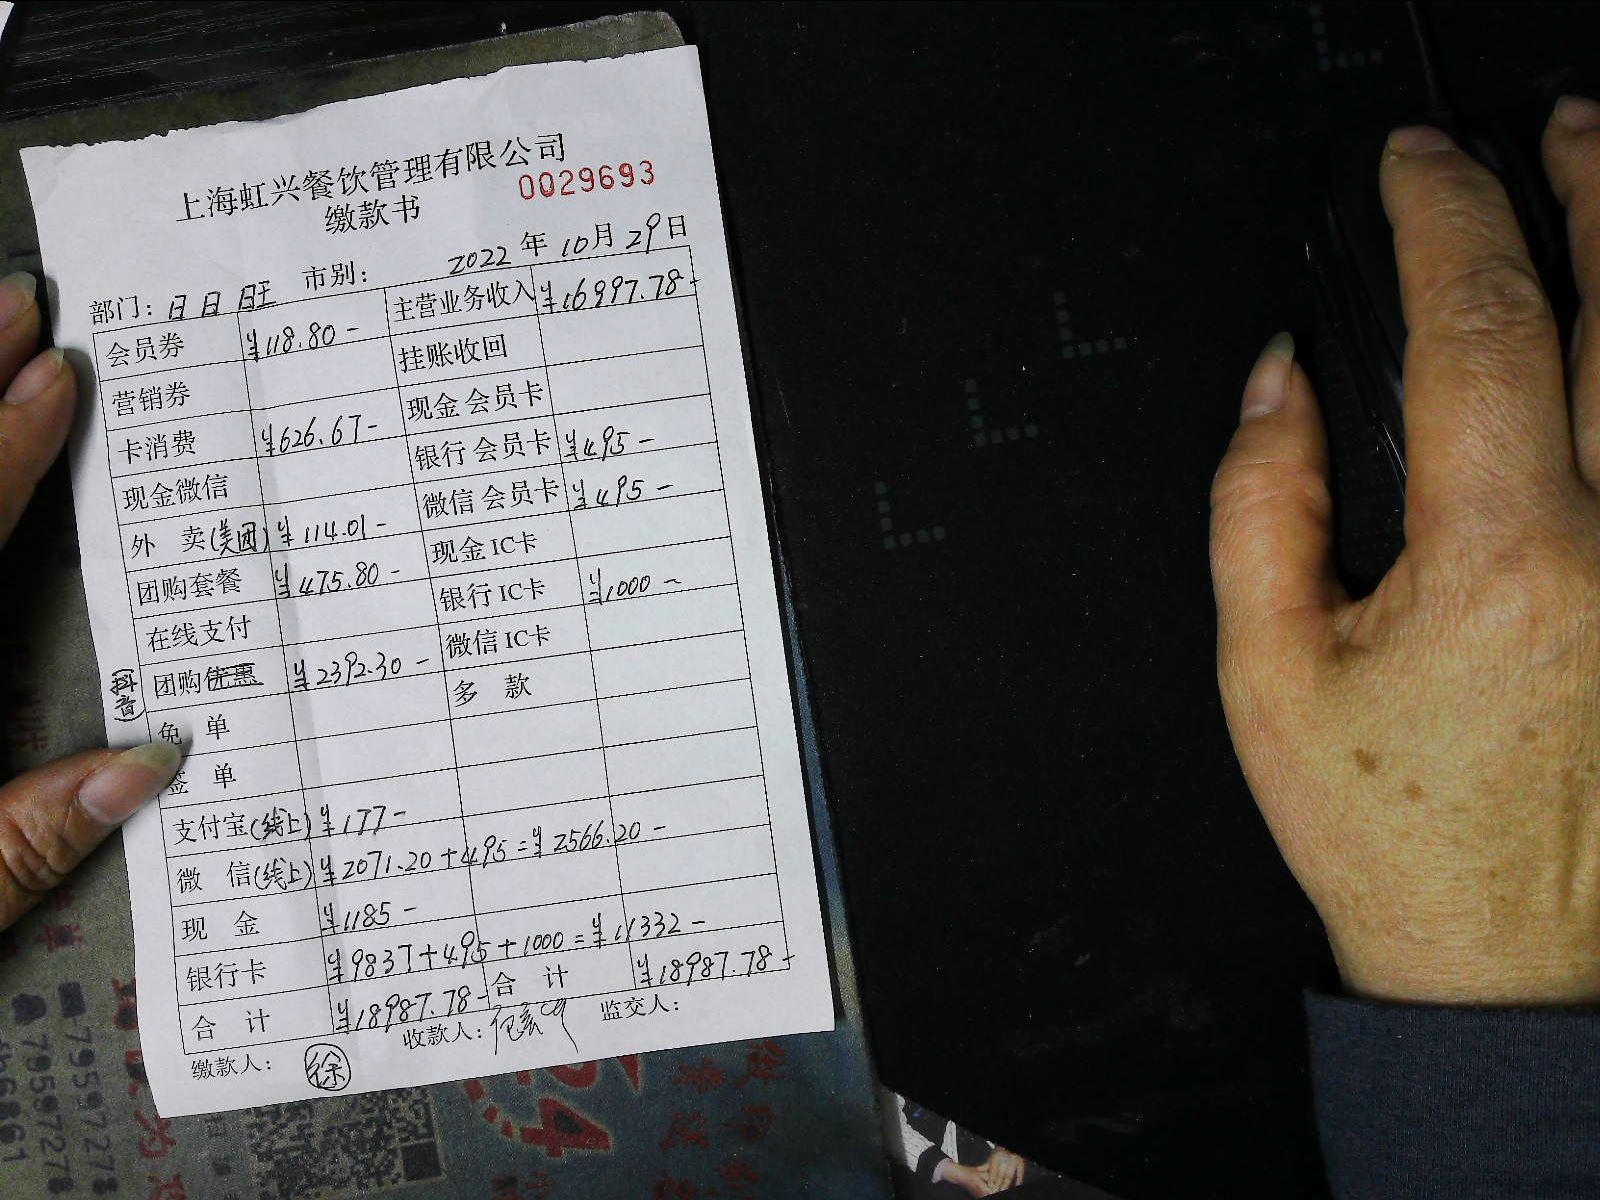 上海虹兴餐饮管理有限公司
缴款书 0029693
部门: 日日旺 市别: 2022年10月29日
会员券 ¥118.80- 主营业务收入 ¥16997.78-
营销券 挂账收回
卡消费 ¥626.67- 现金会员卡
现金微信 银行会员卡 ¥495-
外 卖(美团) ¥114.01- 微信会员卡 ¥495-
团购套餐 ¥475.80- 现金IC卡
在线支付 银行IC卡 ¥1000-
团购优惠(抖音) ¥2392.30- 微信IC卡
免 单 多 款
签 单
支付宝(线上) ¥177-
微 信(线上) ¥2071.20+495=¥2566.20-
现 金 ¥1185-
银行卡 ¥9837+495+1000=¥11332-
合 计 ¥18987.78- 合 计 ¥18987.78-
缴款人: 徐 收款人: 监交人:
24
79597278
79597278